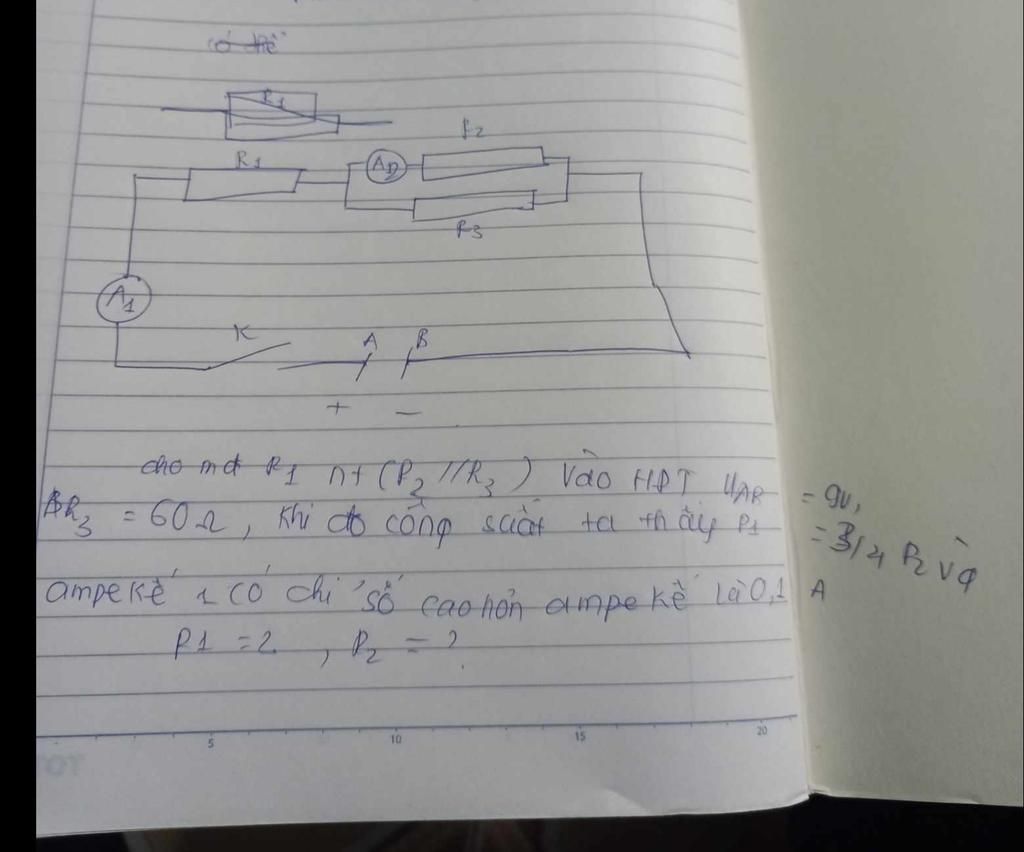 có thể
R1
R1
R2
A2
R3
A1
K
A B
+ −
cho mđ R1 nt (R2//R3) Vào HĐT UAB = 9V,
R3 = 60Ω, Khi đo công suất ta thấy P1 = 3/4 P2 và
ampe kế 1 có chỉ số cao hơn ampe kế là 0,1 A
R1 = ?, R2 = ?
5 10 15 20